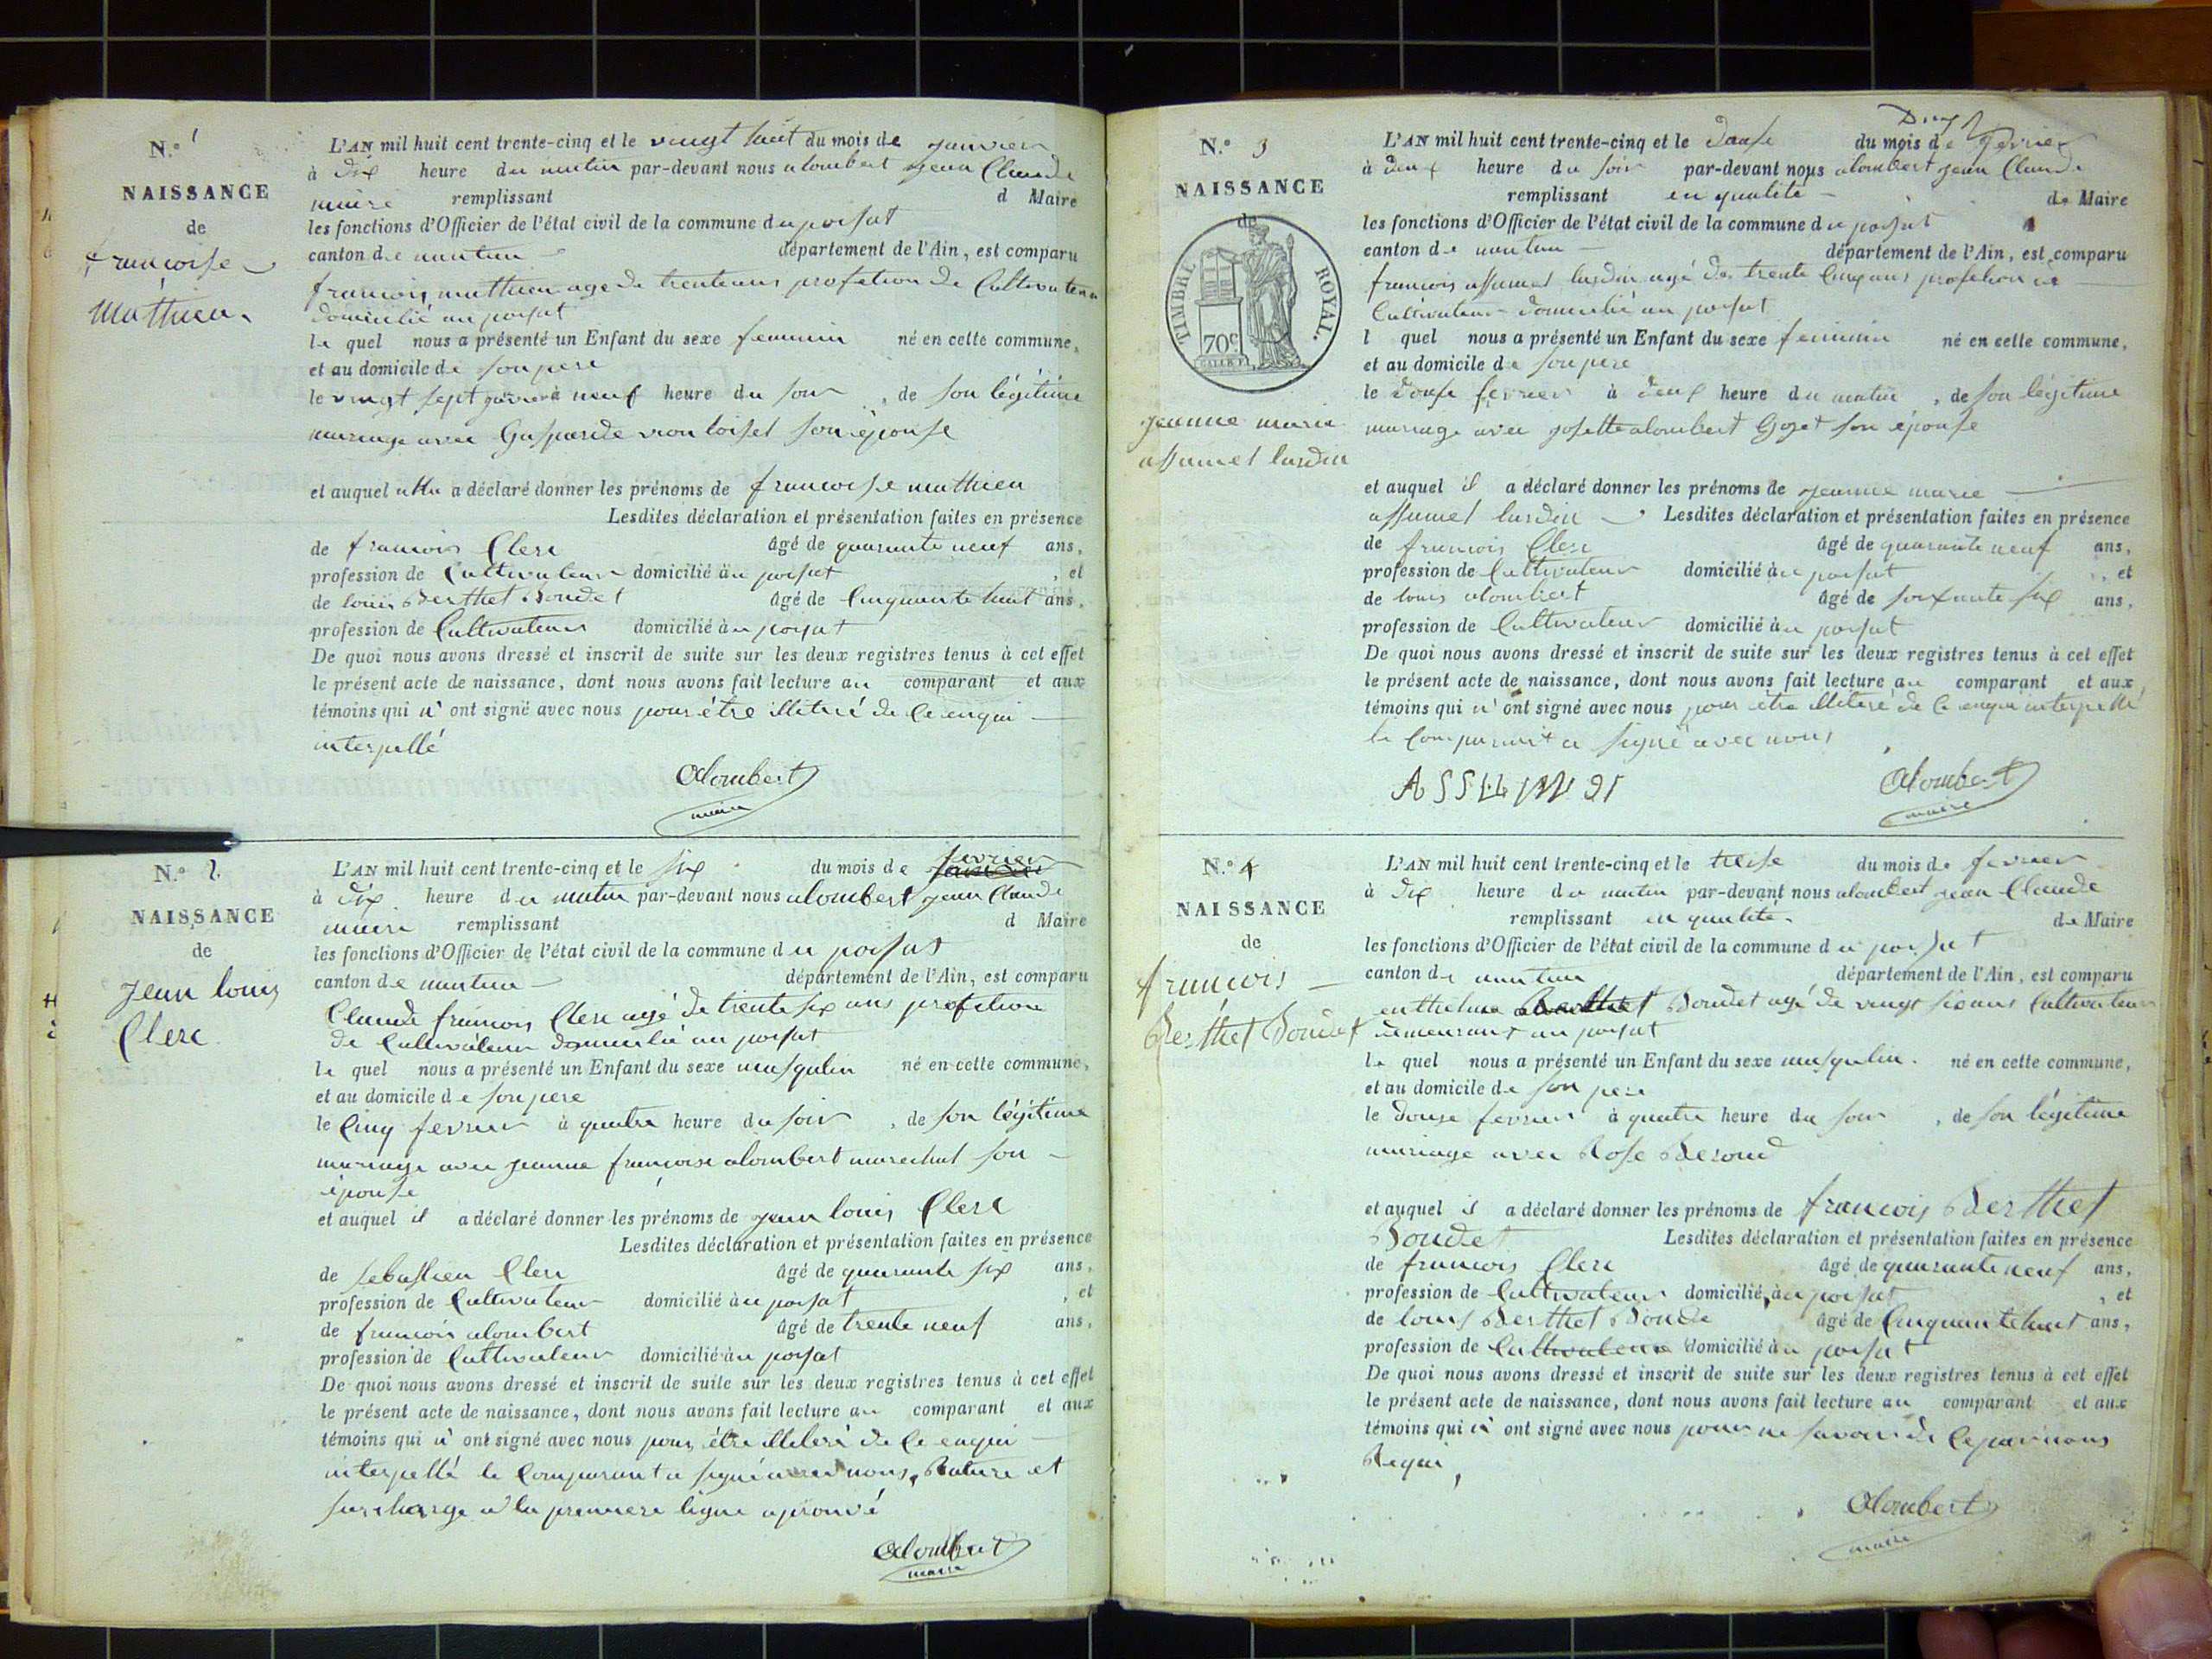 N.º 1
NAISSANCE
de
françoise
Mathieu
L'AN mil huit cent trente-cinq et le vingt huit du mois de janvier
à dix heure du matin par-devant nous alombert jean Claude
maire remplissant d Maire
les fonctions d'Officier de l'état civil de la commune du poizat
canton de nantua département de l'Ain, est comparu
francois mathieu age de trente ans profetion de Cultivateur
domicilié au poizat
le quel nous a présenté un Enfant du sexe feminin né en cette commune,
et au domicile de son pere
le vingt sept janvier à neuf heure du soir, de son légitime
mariage avec Gasparde son épouse
et auquel a déclaré donner les prénoms de francoise mathieu
Lesdites déclaration et présentation faites en présence
de francois Clerc âgé de quarante neuf ans,
profession de Cultivateur domicilié au poizat, et
de louis Berthet Bondet âgé de Cinquante huit ans,
profession de Cultivateur domicilié au poizat
De quoi nous avons dressé et inscrit de suite sur les deux registres tenus à cet effet
le présent acte de naissance, dont nous avons fait lecture au comparant et aux
témoins qui n'ont signé avec nous pour être illiteré de Ce enqui
interpellé
Alombert
maire
N.º 2
NAISSANCE
de
Jean louis
Clerc
L'AN mil huit cent trente-cinq et le six du mois de fevrier
à dix heure du matin par-devant nous alombert jean Claude
maire remplissant d Maire
les fonctions d'Officier de l'état civil de la commune du poizat
canton de nantua département de l'Ain, est comparu
Claude francois Clerc agé de trente six ans profetion
de Cultivateur domicilié au poizat
le quel nous a présenté un Enfant du sexe masqulin né en cette commune,
et au domicile de son pere
le Cinq fevrier à quatre heure du soir, de son légitime
mariage avec jeanne francoise alombert marechal son
épouse
et auquel il a déclaré donner les prénoms de jean louis Clerc
Lesdites déclaration et présentation faites en présence
de sebastien Clerc âgé de quarante six ans,
profession de Cultivateur domicilié au poizat, et
de francois alombert âgé de trente neuf ans,
profession de Cultivateur domicilié au poizat
De quoi nous avons dressé et inscrit de suite sur les deux registres tenus à cet effet
le présent acte de naissance, dont nous avons fait lecture au comparant et aux
témoins qui n'ont signé avec nous pour être illiteré de Ce enqui
interpellé le Comparant a signé avec nous, Rature et
surcharge a la premiere ligne aprouvé
Alombert
maire
N.º 3
NAISSANCE
de
TIMBRE ROYAL.
70c
jeanne marie
assumel lurdin
L'AN mil huit cent trente-cinq et le douse du mois de fevrier
à deux heure du soir par-devant nous alombert jean Claude
remplissant en qualité de Maire
les fonctions d'Officier de l'état civil de la commune du poizat
canton de nantua département de l'Ain, est comparu
francois assumel lurdin agé de trente Cinq ans profetion de
Cultivateur domicilié au poizat
l quel nous a présenté un Enfant du sexe feminin né en cette commune,
et au domicile de son pere
le douse fevrier à deux heure du matin, de son légitime
mariage avec josette alombert Goget son épouse
et auquel il a déclaré donner les prénoms de jeanne marie
assumel lurdin Lesdites déclaration et présentation faites en présence
de francois Clerc âgé de quarante neuf ans,
profession de Cultivateur domicilié au poizat, et
de louis alombert âgé de soixante six ans,
profession de Cultivateur domicilié au poizat
De quoi nous avons dressé et inscrit de suite sur les deux registres tenus à cet effet
le présent acte de naissance, dont nous avons fait lecture au comparant et aux
témoins qui n'ont signé avec nous pour etre illiteré de Ce enqui interpellé
le Comparant a signé avec nous
Alombert
maire
N.º 4
NAISSANCE
de
francois
Berthet Bondet
L'AN mil huit cent trente-cinq et le treise du mois de fevrier
à dix heure du matin par-devant nous alombert jean Claude
remplissant en qualité de Maire
les fonctions d'Officier de l'état civil de la commune du poizat
canton de nantua département de l'Ain, est comparu
enthelme Berthet Bondet agé de vingt six ans Cultivateur
demeurant au poizat
le quel nous a présenté un Enfant du sexe masqulin né en cette commune,
et au domicile de son pere
le douze fevrier à quatre heure du soir, de son légitime
mariage avec Rose Beroud
et auquel il a déclaré donner les prénoms de francois Berthet
Bondet Lesdites déclaration et présentation faites en présence
de francois Clerc âgé de quarante neuf ans,
profession de Cultivateur domicilié au poizat, et
de louis Berthet Bonde âgé de Cinquante huit ans,
profession de Cultivateur domicilié au poizat
De quoi nous avons dressé et inscrit de suite sur les deux registres tenus à cet effet
le présent acte de naissance, dont nous avons fait lecture au comparant et aux
témoins qui n'ont signé avec nous pour ne savoir de Ce par nous
Requi
Alombert
maire